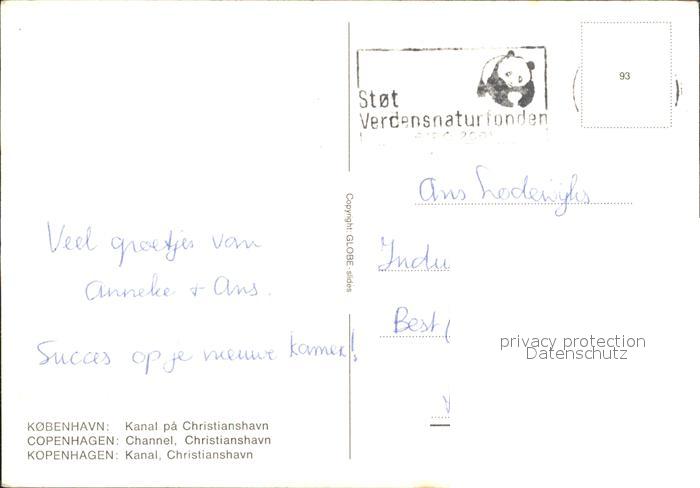 Støt
Verdensnaturfonden
93
Ans Lodewijks
Indu
Best
Veel groetjes van
Anneke + Ans.
Succes op je nieuwe kamer!
Copyright: GLOBE slides
privacy protection
Datenschutz
KØBENHAVN: Kanal på Christianshavn
COPENHAGEN: Channel, Christianshavn
KOPENHAGEN: Kanal, Christianshavn